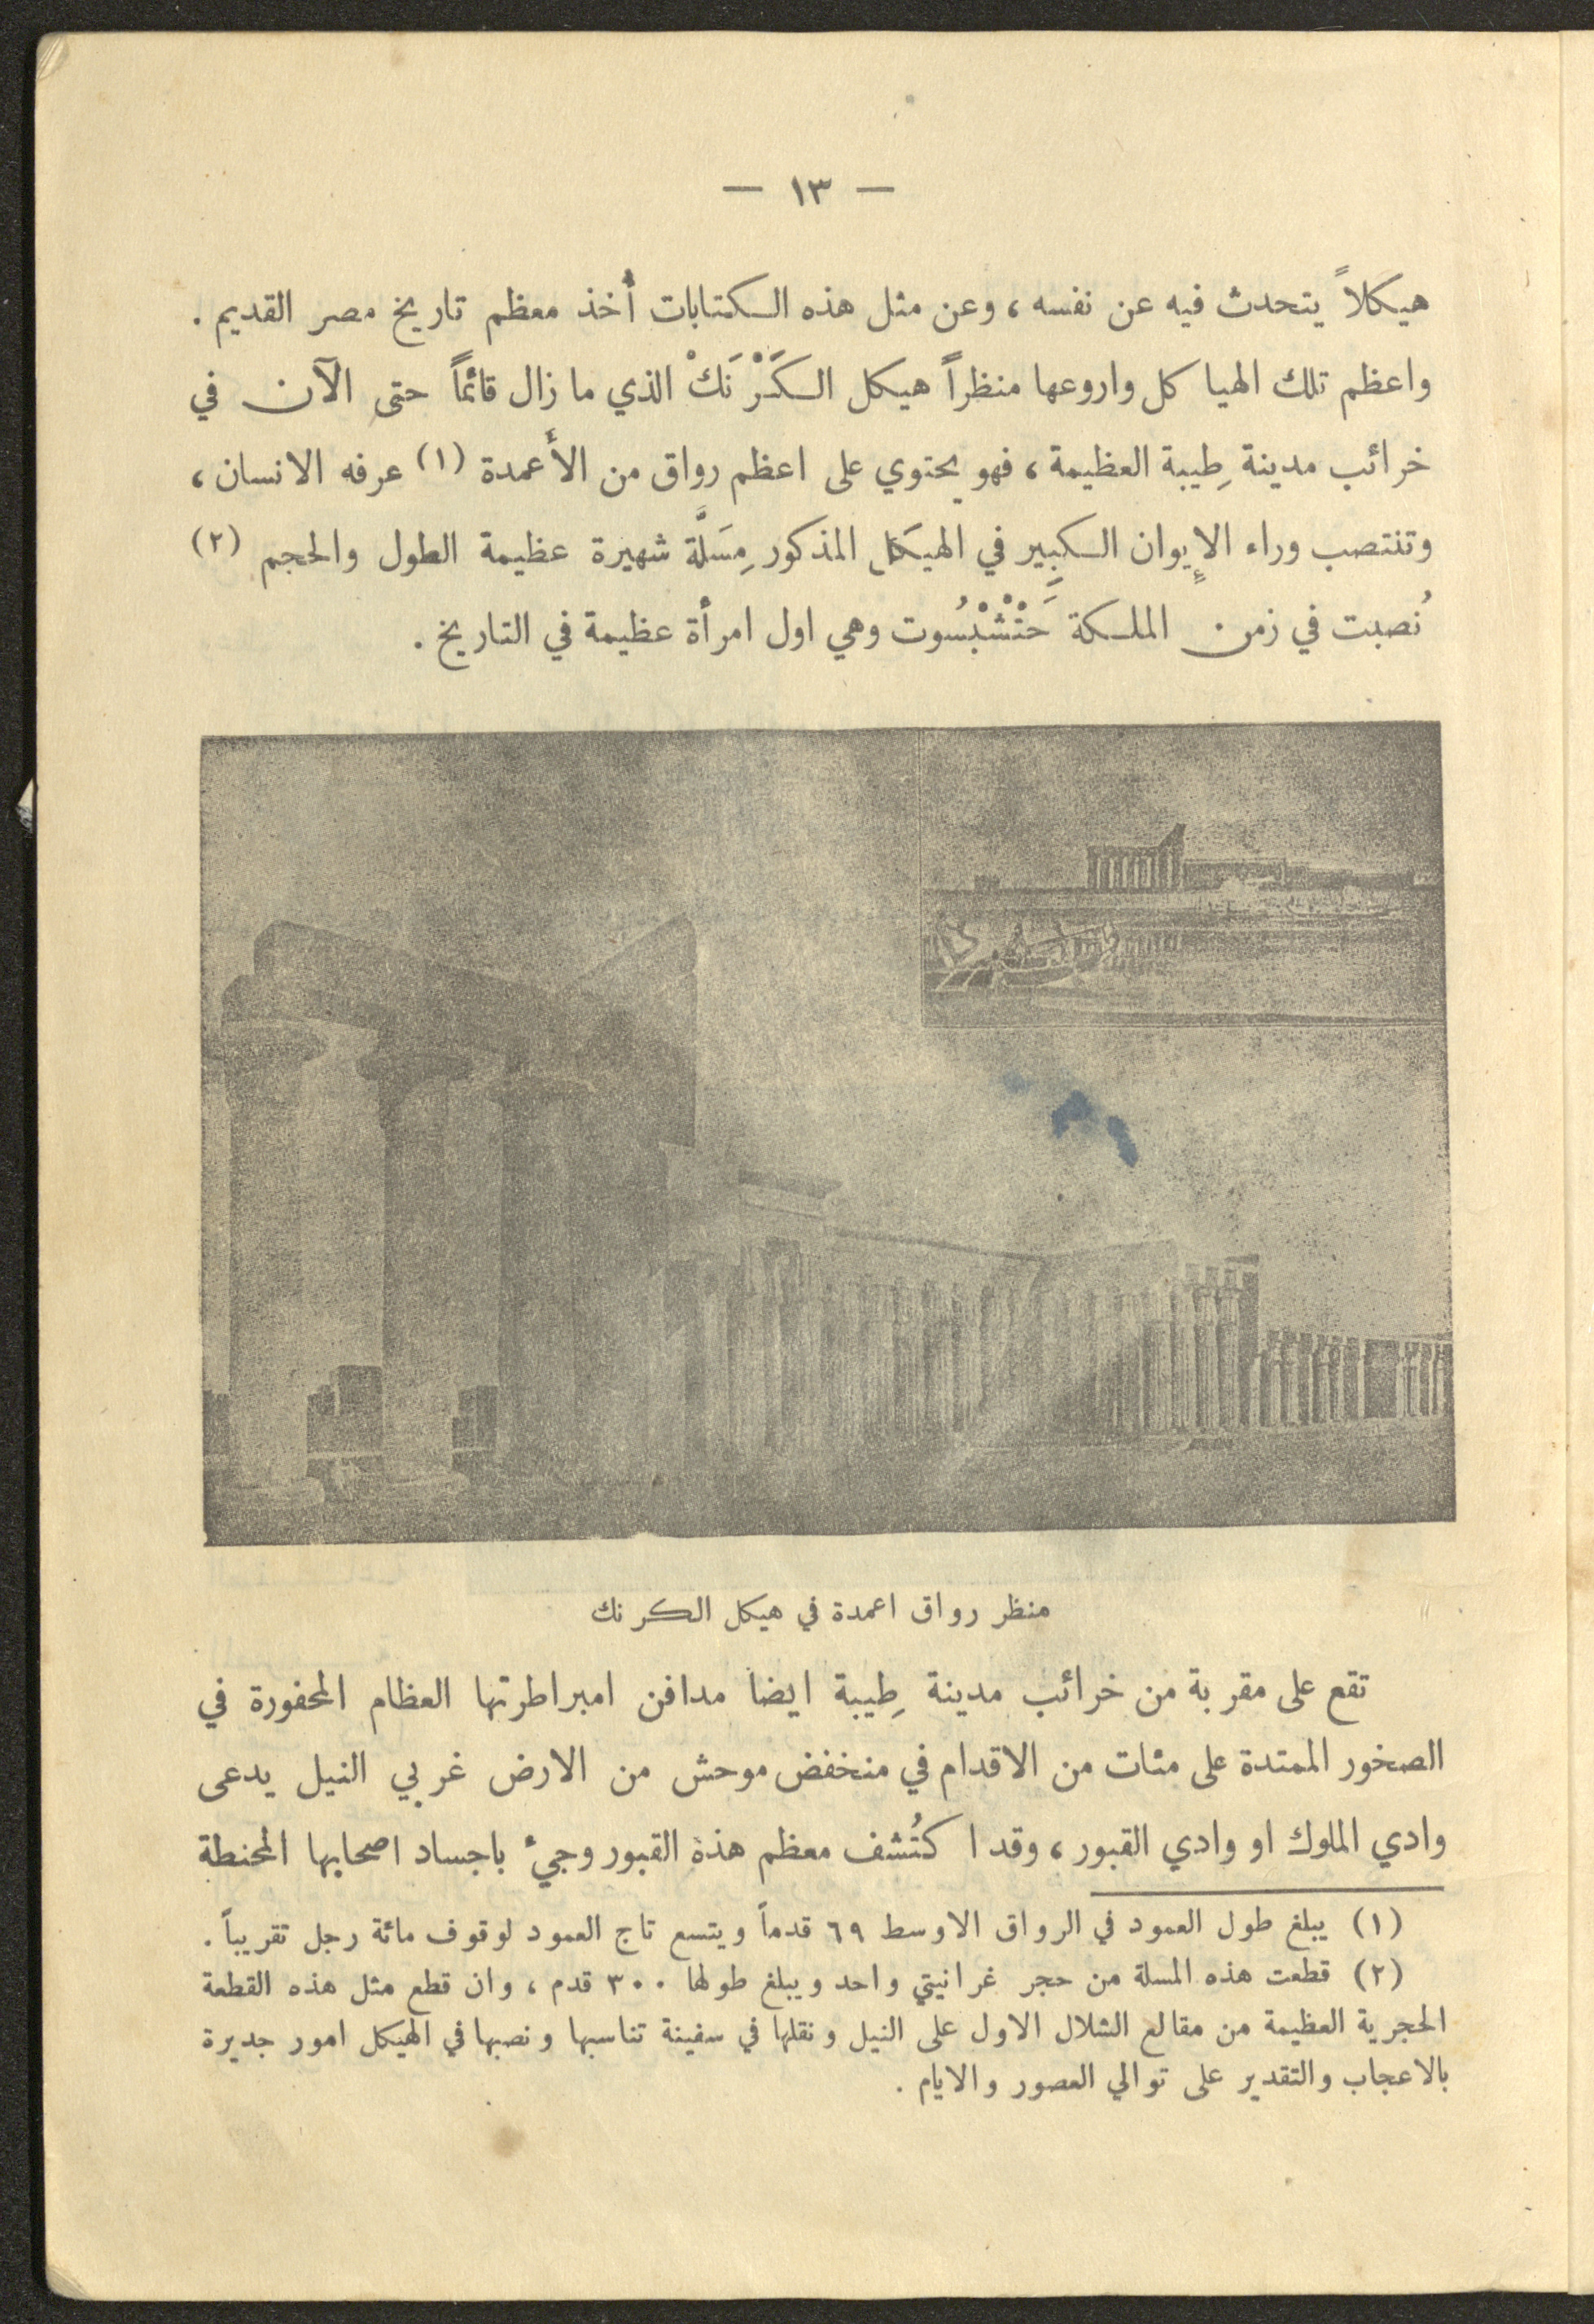 — ١٣ —
هيكلاً يتحدث فيه عن نفسه ، وعن مثل هذه الكتابات أُخذ معظم تاريخ مصر القديم .
واعظم تلك الهياكل واروعها منظراً هيكل الكَرْنَكْ الذي ما زال قائماً حتى الآن في
خرائب مدينة طِيبة العظيمة ، فهو يحتوي على اعظم رواق من الأعمدة (١) عرفه الانسان ،
وتنتصب وراء الإِيوان الكبِير في الهيكل المذكور مِسَلَّة شهيرة عظيمة الطول والحجم (٢)
نُصبت في زمن الملكة حَتْشْبْسُوت وهي اول امرأة عظيمة في التاريخ .
منظر رواق اعمدة في هيكل الكرنك
تقع على مقربة من خرائب مدينة طِيبة ايضا مدافن امبراطرتها العظام المحفورة في
الصخور الممتدة على مئات من الاقدام في منخفض موحش من الارض غربي النيل يدعى
وادي الملوك او وادي القبور ، وقد اكتُشف معظم هذه القبور وجيء باجساد اصحابها المحنطة
(١) يبلغ طول العمود في الرواق الاوسط ٦٩ قدماً ويتسع تاج العمود لوقوف مائة رجل تقريباً .
(٢) قطعت هذه المسلة من حجر غرانيتي واحد ويبلغ طولها ٣٠٠ قدم ، وان قطع مثل هذه القطعة
الحجرية العظيمة من مقالع الشلال الاول على النيل ونقلها في سفينة تناسبها ونصبها في الهيكل امور جديرة
بالاعجاب والتقدير على توالي العصور والايام .